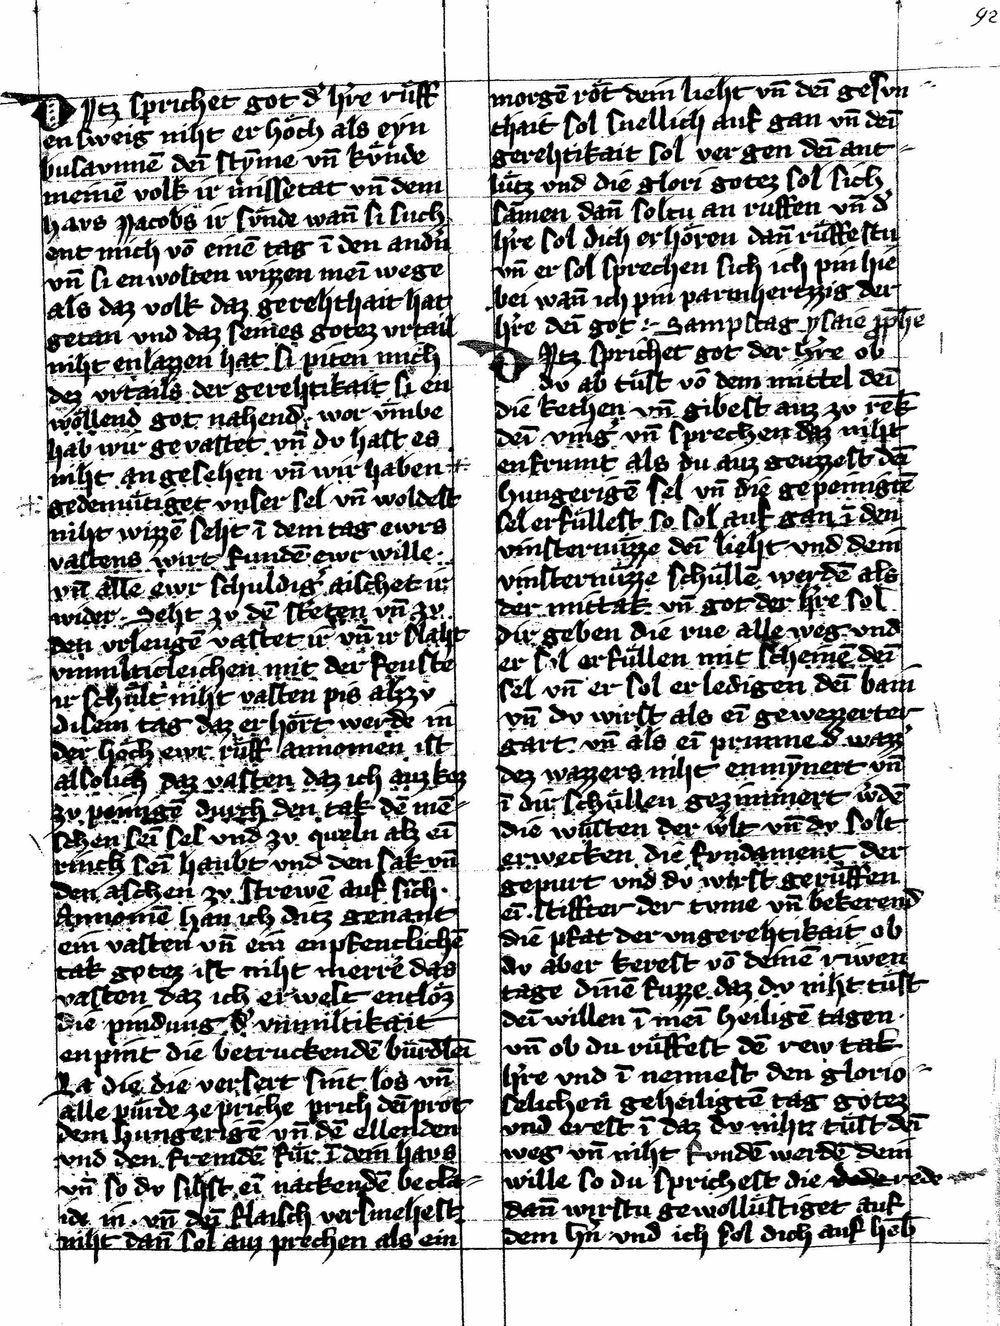 92
Ditz sprichet got d' h're rüff
en sweig niht er hoͤch als eyn
busavnnē dei̅ sty̅me vn̄ kvͤnde
meinē volk ir missetat vn̄ dem
havs Jacobs ir sv̈nde wan̄ si such
ent mich vō einē tag ī den andn̄
vn̄ si en wolten wizzen mei̅ wege
als daz volk daz gerehthait hat
getan vnd daz seines gotez vrtail
niht enlazzen hat si piten mich
dez vrtails der gerehtikait si en
woͤllend got nahend wor vmbe
hab wir gevastet vn̄ dv hast es
niht an gesehen vn̄ wir haben
gedemuͤtiget vnser sel vn̄ woldest
niht wizzē seht ī dem tag ewrs
vastens wirt fundē ewr wille
vn̄ alle ewr schuldig' aischet ir
wider. Seht zv dē kreten vn̄ zv
den vrleugē vastet ir vn̄ ir slaht
vnmilticleichen mit der feuste
ir schuͤlt niht vasten pis alzzv
disem tag daz er hoͤrt werde in
der hoͤch ewr ruͤff annomen ist
assolich daz vasten daz ich auz kez
zv peinigē durch den tak dē mē-
schen sei̅ sel vnd zv queln alz ei̅
rinch sei̅ haubt vnd den sak vn̄
den aschen zv strewē auf sich.
Annomē han ich ditz genant
ein vasten vn̄ ein enpfenclichē
tak gotez ist niht merrē das
vasten daz ich erwelt entloͤz
die pindung d' vnmiltikait
enpint die betruckendē bürdlei̅
La die die versert sint los vn̄
alle pürde ze priche prich dei̅ prot
dem hungerigē vn̄ dē ellenden
vnd den fremdē für ī dem havs
vn̄ so dv sihst ei̅ nackendē becla-
id in. vn̄ dei̅ flaisch versmehest
niht dan̄ sol auz prechen als ein
morgē roͤt dein lieht vn̄ dei̅ gesvn
thait sol snellich auf gan vn̄ dei̅
gerehtikait sol vergen dei̅ ant-
lütz vnd die glori gotez sol sich
samen dan̄ soltu an ruffen vn̄ d'
h're sol dich er hoͤren dan̄ ruͤffestu
vn̄ er sol sprechen sich ich pin hie
bei wan̄ ich pin parmhertzig der
h're dei̅ got :~ Sampstag ysaie p̱phe
Ditz sprichet got der h're ob
dv ab tuͤst vō dem mittel dei̅
die kethen vn̄ gibest auz zv rek
dei̅ ving' vn̄ sprechen daz niht
enfrumt als du auz geuzzest dei̅
hungerigē sel vn̄ die gepeinigtē
sel erfüllest so sol auf gan ī den
vinsternüzze dei̅ lieht vnd dein
vinsternüzze schullē werdē als
der mittak vn̄ got der h're sol
dir geben die rue alle weg vnd
er sol erfüllen mit scheinē dei̅
sel vn̄ er sol er ledigen dei̅ bain
vn̄ dv wirst als ei̅ gewezzerter
gart vn̄ als ei̅ prunne d' wazz'
dez wazzers niht enmy̅nert vn̄
ī dir schuͤllen gezimmert w'dē
die wüsten der w'lt vn̄ dv solt
erwecken die fvndament der
gepurt vnd dv wirst gerüffen
ei̅ stiffter der tvme vn̄ bekerend
die pfat der vngerehtikait ob
dv aber kerest vō deinē riwen
tage dinē fuzze daz dv niht tüst
dei̅ willen ī mei̅ heiligē tagen
vn̄ ob du rüffest dē rew tak
h're vnd ī nennest den glorio-
selichen geheiligtē tag gotez
vnd erest ī daz dv nihtz tüst dei̅
weg vn̄ niht fvndē werdē dein
wille so du sprichest die rede
dan̄ wirstu gewollüstiget auf
dem hn̄ vnd ich sol dich auf heb